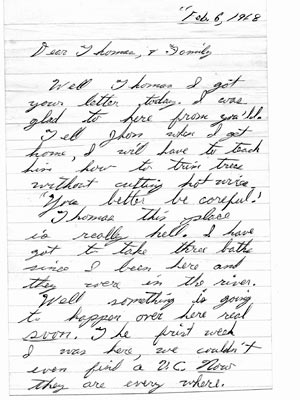 "Feb. 6, 1968
Dear Thomas, & Family
Well Thomas I got
your letter today. I was
glad to here from you'lol.
Tell Jhon when I get
home, I will have to teach
him how to trim trees
without cutting hot wires.
"You better be careful.!
Thomas this place
is really hell. I have
got to take three bath
since I been here and
they were in the river.
Well something is going
to happen over here real
soon. The first week
I was here, we couldn't
even find a V.C. Now
they are every where.